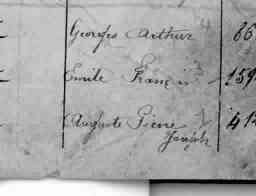 Georges Arthur 4 66
Emile François 3 159
Auguste Pierre 1 412
Joseph